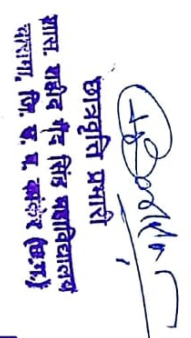 छात्रवृत्ति प्रभारी
शास. शहीद गैंद सिंह महाविद्यालय
चारामा, जि. उ. ब. कांकेर (छ.ग.)